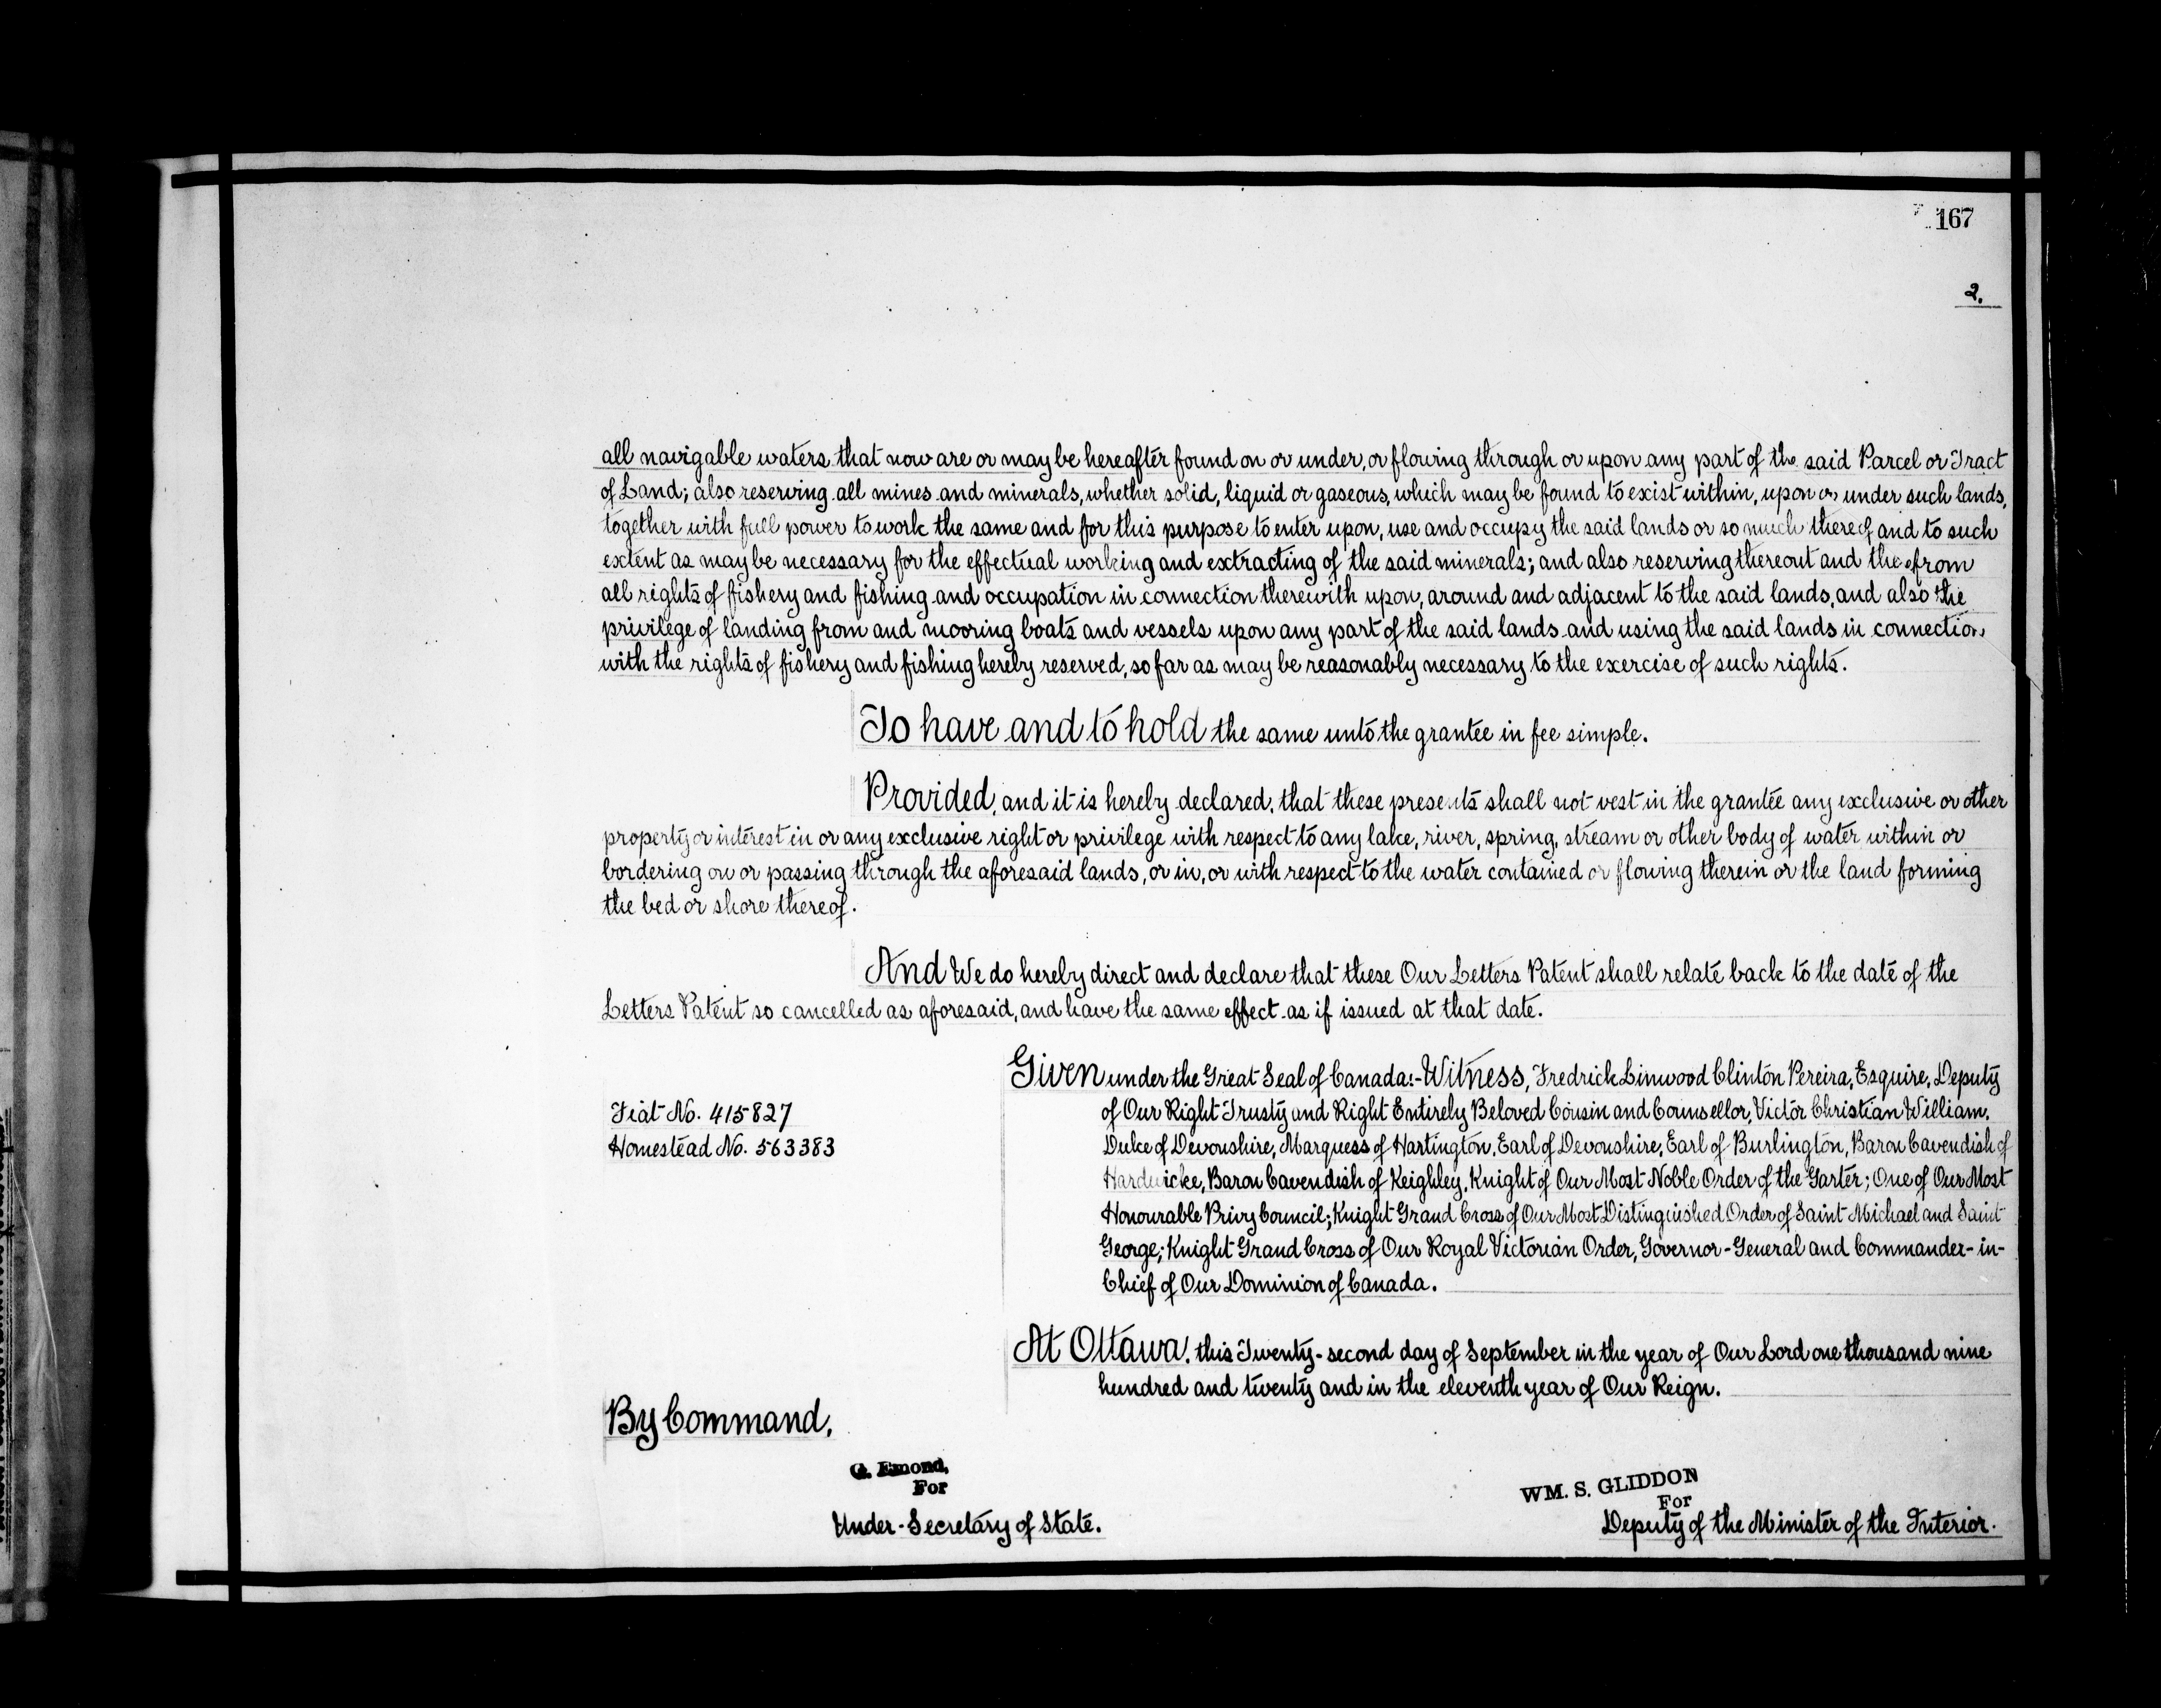 167
2.
all navigable waters that now are or may be hereafter found on or under, or flowing through or upon any part of the said Parcel or Tract
of Land; also reserving all mines and minerals, whether solid, liquid or gaseous, which may be found to exist within, upon or under such lands,
together with full power to work the same and for this purpose to enter upon, use and occupy the said lands or so much thereof and to such
extent as may be necessary for the effectual working and extracting of the said minerals; and also reserving thereout and therefrom
all rights of fishery and fishing and occupation in connection therewith upon, around and adjacent to the said lands, and also the
privilege of landing from and mooring boats and vessels upon any part of the said lands and using the said lands in connection
with the rights of fishery and fishing hereby reserved, so far as may be reasonably necessary to the exercise of such rights.
To have and to hold the same unto the grantee in fee simple.
Provided, and it is hereby declared, that these presents shall not vest in the grantee any exclusive or other
property or interest in or any exclusive right or privilege with respect to any lake, river, spring, stream or other body of water within or
bordering on or passing through the aforesaid lands, or in, or with respect to the water contained or flowing therein or the land forming
the bed or shore thereof.
And We do hereby direct and declare that these Our Letters Patent shall relate back to the date of the
Letters Patent so cancelled as aforesaid, and have the same effect as if issued at that date.
Given under the Great Seal of Canada:- Witness, Fredrick Linwood Clinton Pereira, Esquire, Deputy
of Our Right Trusty and Right Entirely Beloved Cousin and Counsellor, Victor Christian William,
Duke of Devonshire, Marquess of Hartington, Earl of Devonshire, Earl of Burlington, Baron Cavendish of
Hardwicke, Baron Cavendish of Keighley, Knight of Our Most Noble Order of the Garter; One of Our Most
Honourable Privy Council; Knight Grand Cross of Our Most Distinguished Order of Saint Michael and Saint
George; Knight Grand Cross of Our Royal Victorian Order, Governor-General and Commander-in-
Chief of Our Dominion of Canada.
Fiat No. 415827
Homestead No. 563383
At Ottawa, this Twenty-second day of September in the year of Our Lord one thousand nine
hundred and twenty and in the eleventh year of Our Reign.
By Command,
G. Emond,
For
Under-Secretary of State.
WM. S. GLIDDON
For
Deputy of the Minister of the Interior.